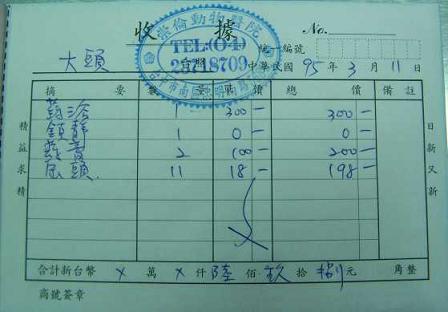 收據
No.
榮倫動物醫院
TEL:(04)
23718709
統一編號
大頭 台照 中華民國 95年3月11日
摘要 數量 單價 總價 備註
藥浴 1 300— 300—
鎮靜 1 0— 0—
2 100— 200—
罐頭 11 18— 198—
精益求精
日新又新
合計新台幣 × 萬 × 仟 陸 佰 玖 拾 捌 元 角整
商號簽章